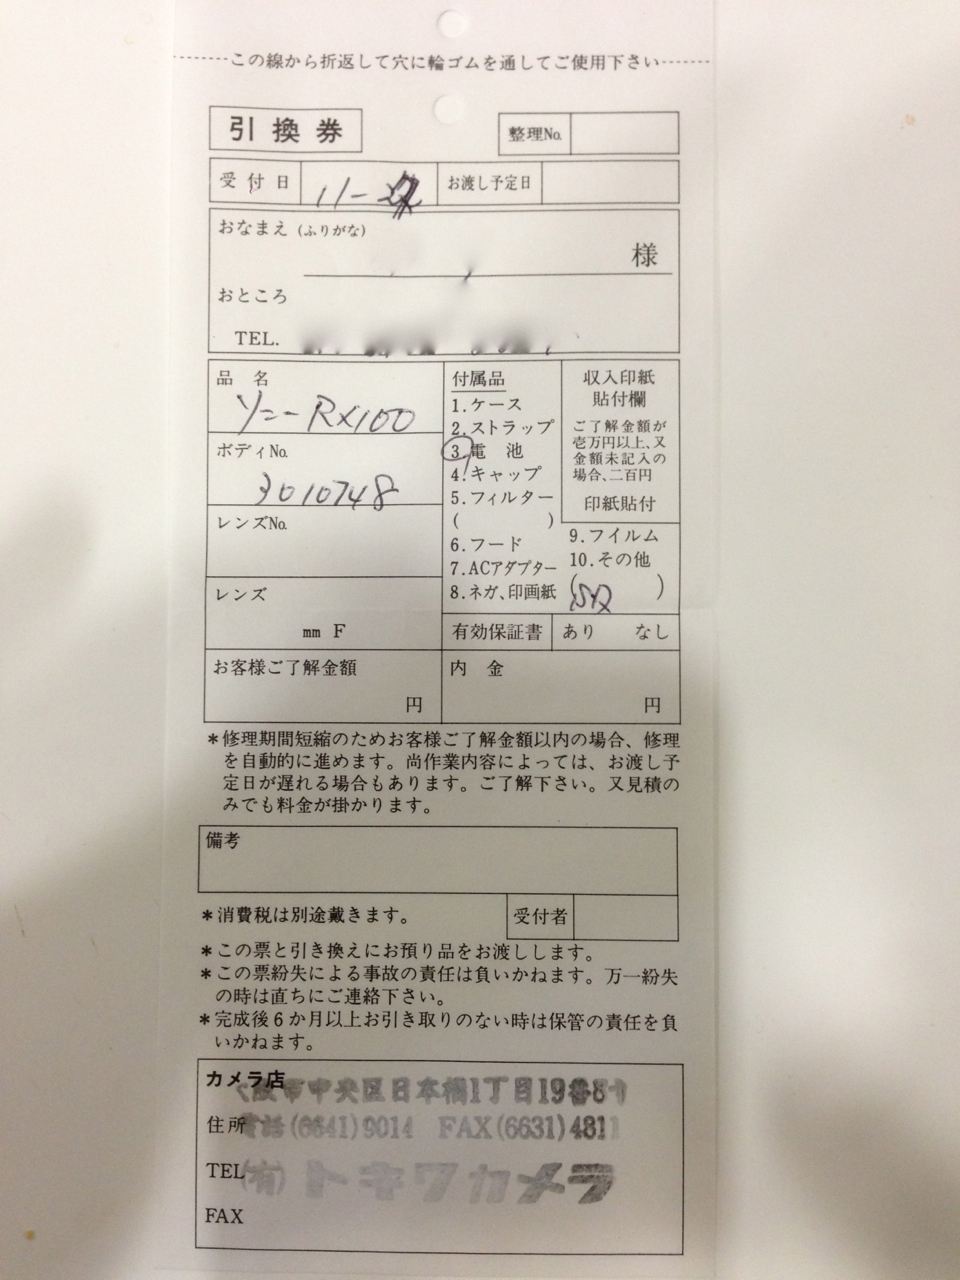 この線から折返して穴に輪ゴムを通してご使用下さい
引換券
整理No.
受付日 11-
お渡し予定日
おなまえ (ふりがな)
様
おところ
TEL.
品名
ソニー RX100
ボディNo.
3010748
レンズNo.
レンズ
mm F
付属品
1.ケース
2.ストラップ
3.電池
4.キャップ
5.フィルター
( )
6.フード
7.ACアダプター
8.ネガ、印画紙
収入印紙
貼付欄
ご了解金額が
壱万円以上、又
金額未記入の
場合、二百円
印紙貼付
9.フイルム
10.その他
( )
有効保証書 あり なし
お客様ご了解金額
円
内金
円
*修理期間短縮のためお客様ご了解金額以内の場合、修理
を自動的に進めます。尚作業内容によっては、お渡し予
定日が遅れる場合もあります。ご了解下さい。又見積の
みでも料金が掛かります。
備考
*消費税は別途戴きます。
受付者
*この票と引き換えにお預り品をお渡しします。
*この票紛失による事故の責任は負いかねます。万一紛失
の時は直ちにご連絡下さい。
*完成後6か月以上お引き取りのない時は保管の責任を負
いかねます。
カメラ店
阪市中央区日本橋1丁目19番8
住所
電話(6641)9014 FAX(6631)4811
TEL
(有)トキワカメラ
FAX